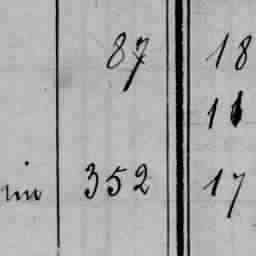 87 18
11
352 17